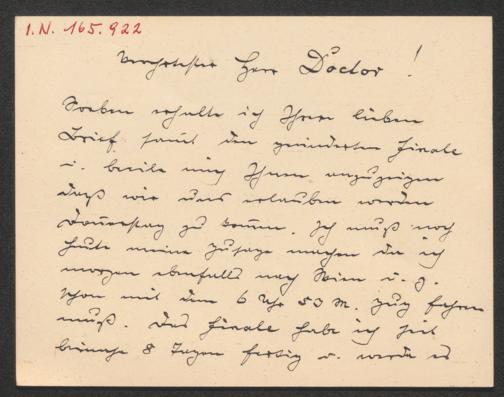 I.N. 165.922
Verehrtester Herr Doctor!
Soeben erhalte ich Ihren lieben
Brief samt den geänderten Finale
u. beeile mich Ihnen anzuzeigen
daß wir uns erlauben werden
Donnerstag zu kommen. Ich muß noch
heute meine Zusage machen da ich
morgen ebenfalls nach Wien u. z.
schon mit dem 6 Uhr 53 M. Zug fahren
muß. Das Finale habe ich seit
beinahe 8 Tagen fertig u. werde es